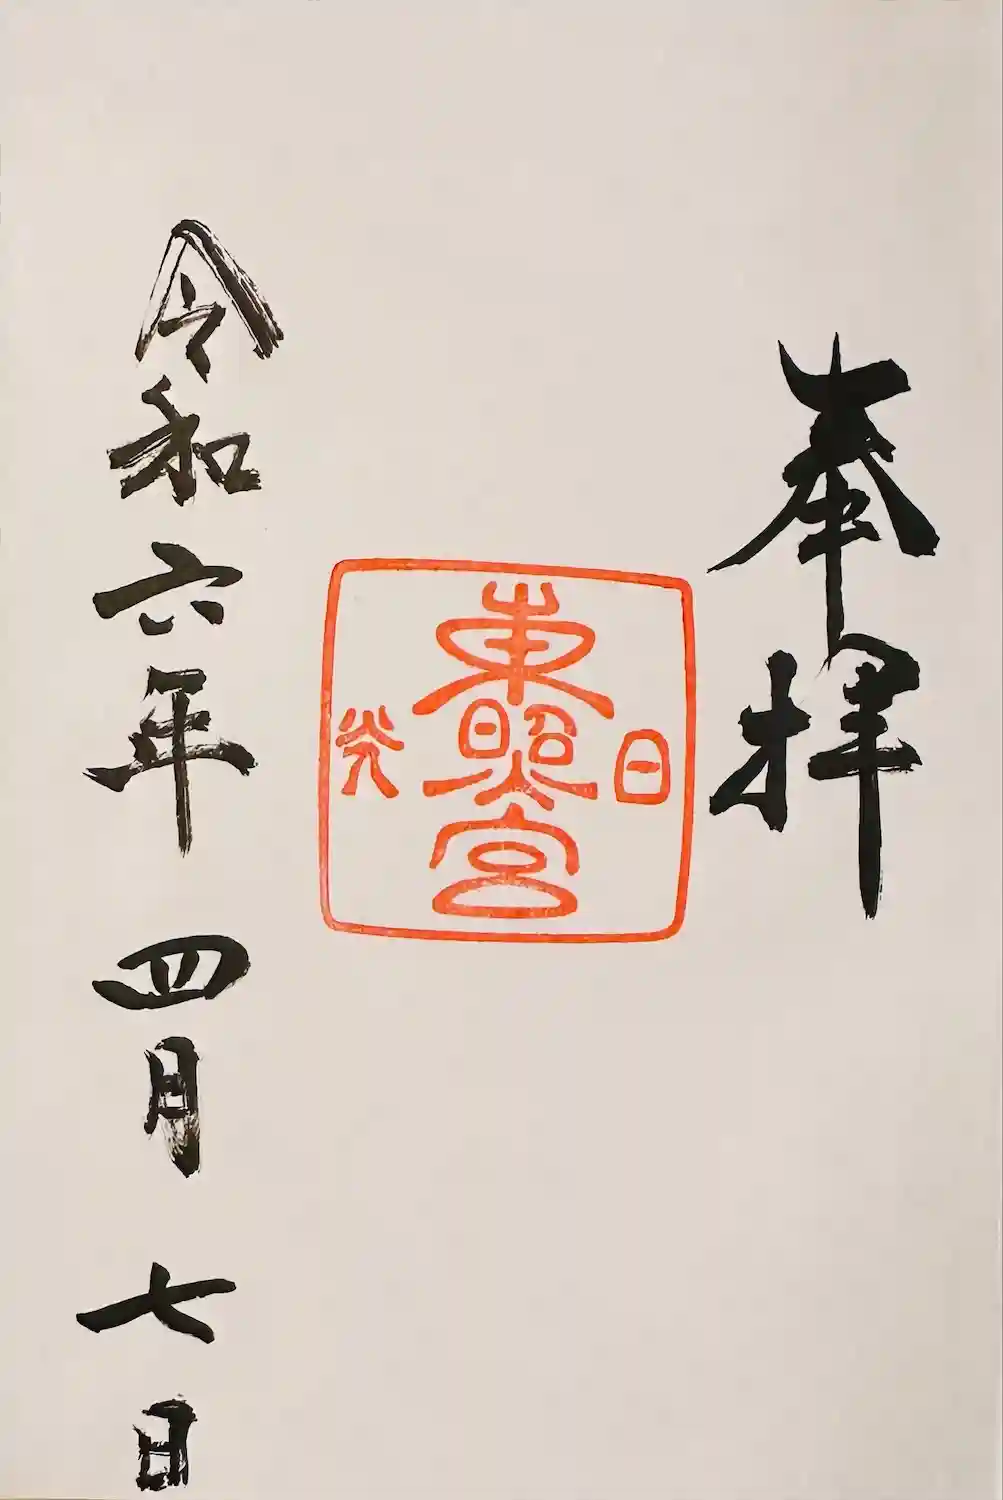 奉拝
日
東照宮
光
令和六年 四月 七日